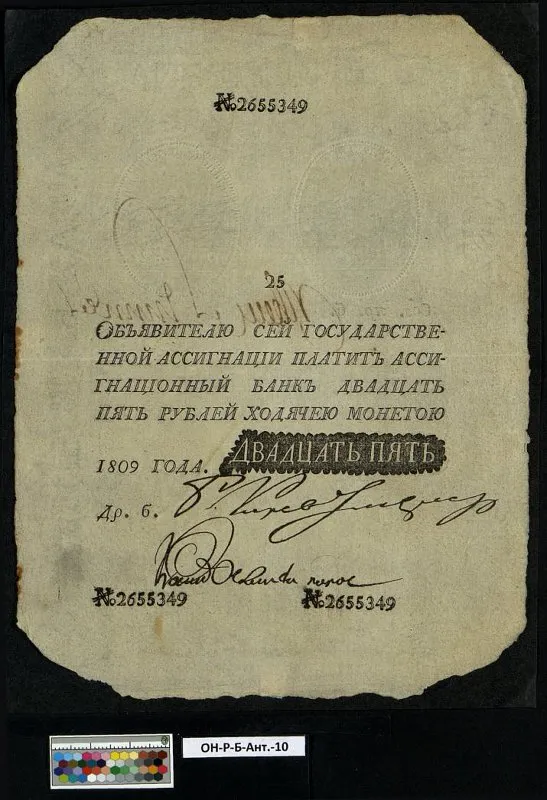 №2655349
25
Объявителю сей государстве-
нной ассигнацiи платитъ асси-
гнацiонный банкъ двадцать
пять рублей ходячею монетою
1809 года. Двадцать пять
Др. б.
№2655349 №2655349
ОН-Р-Б-Ант.-10